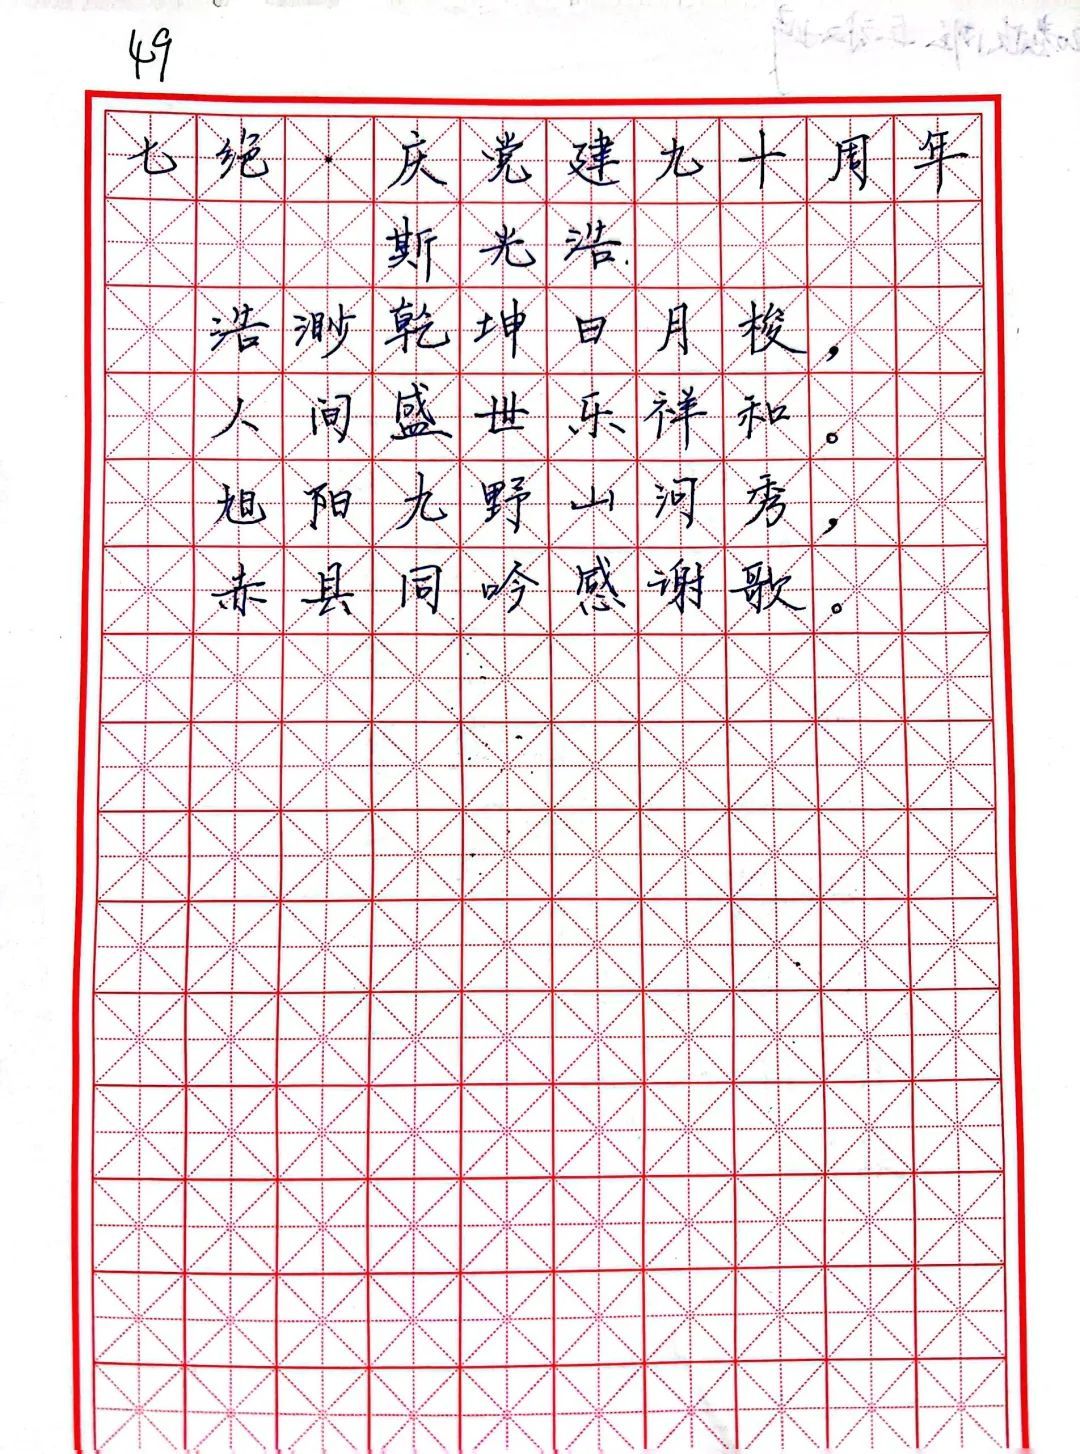 49
七绝·庆党建九十周年
斯光浩
浩渺乾坤日月梭，
人间盛世乐祥和。
旭阳九野山河秀，
赤县同吟感谢歌。